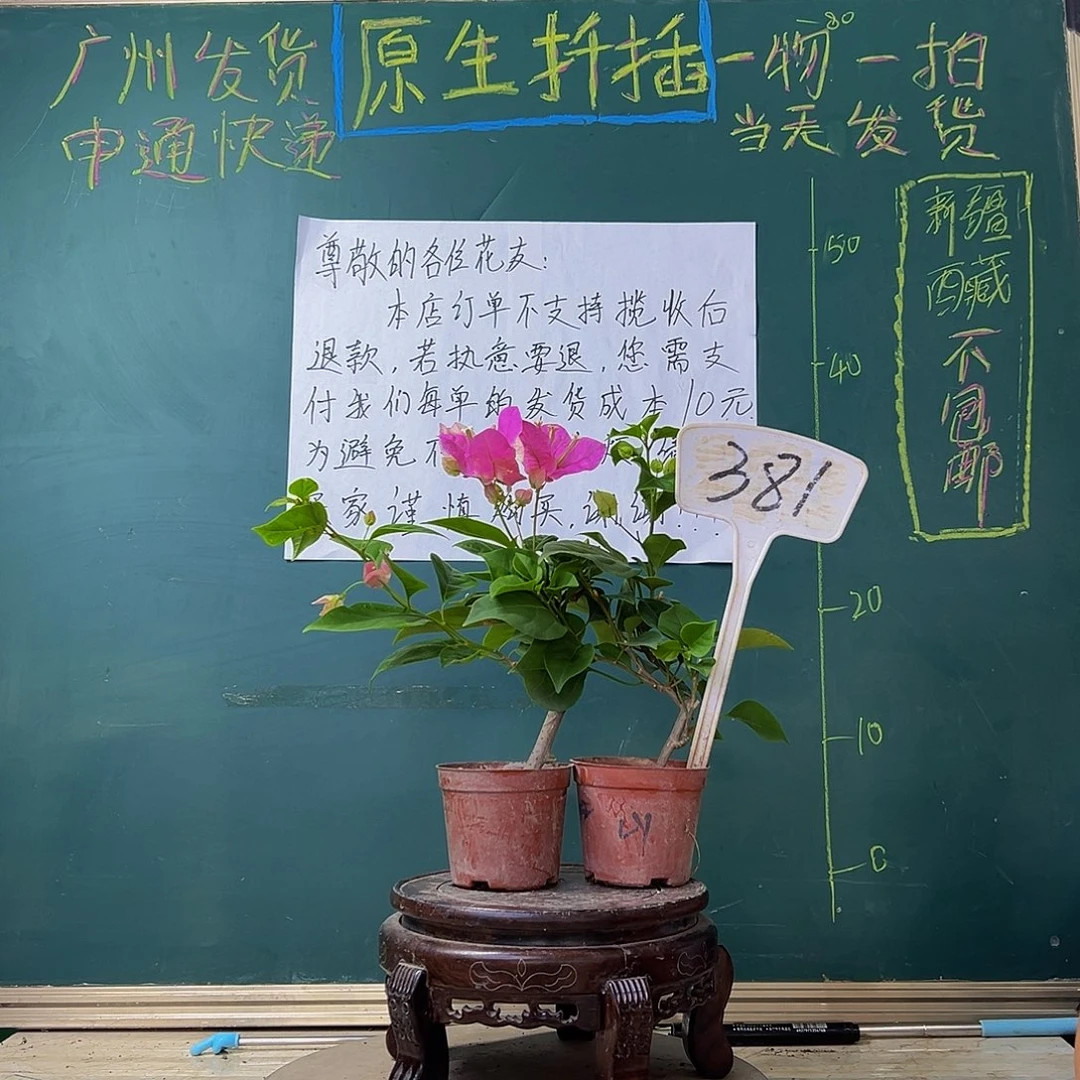 广州发货
申通快递
原生扦插
一物一拍
80
当天发货
新疆
西藏
不
包
邮
尊敬的各位花友:
本店订单不支持揽收后
退款,若执意要退,您需支
付我们每单的发货成本10元
为避免不
家谨慎购买,谢谢!!!
381
50
40
20
10
0
LY